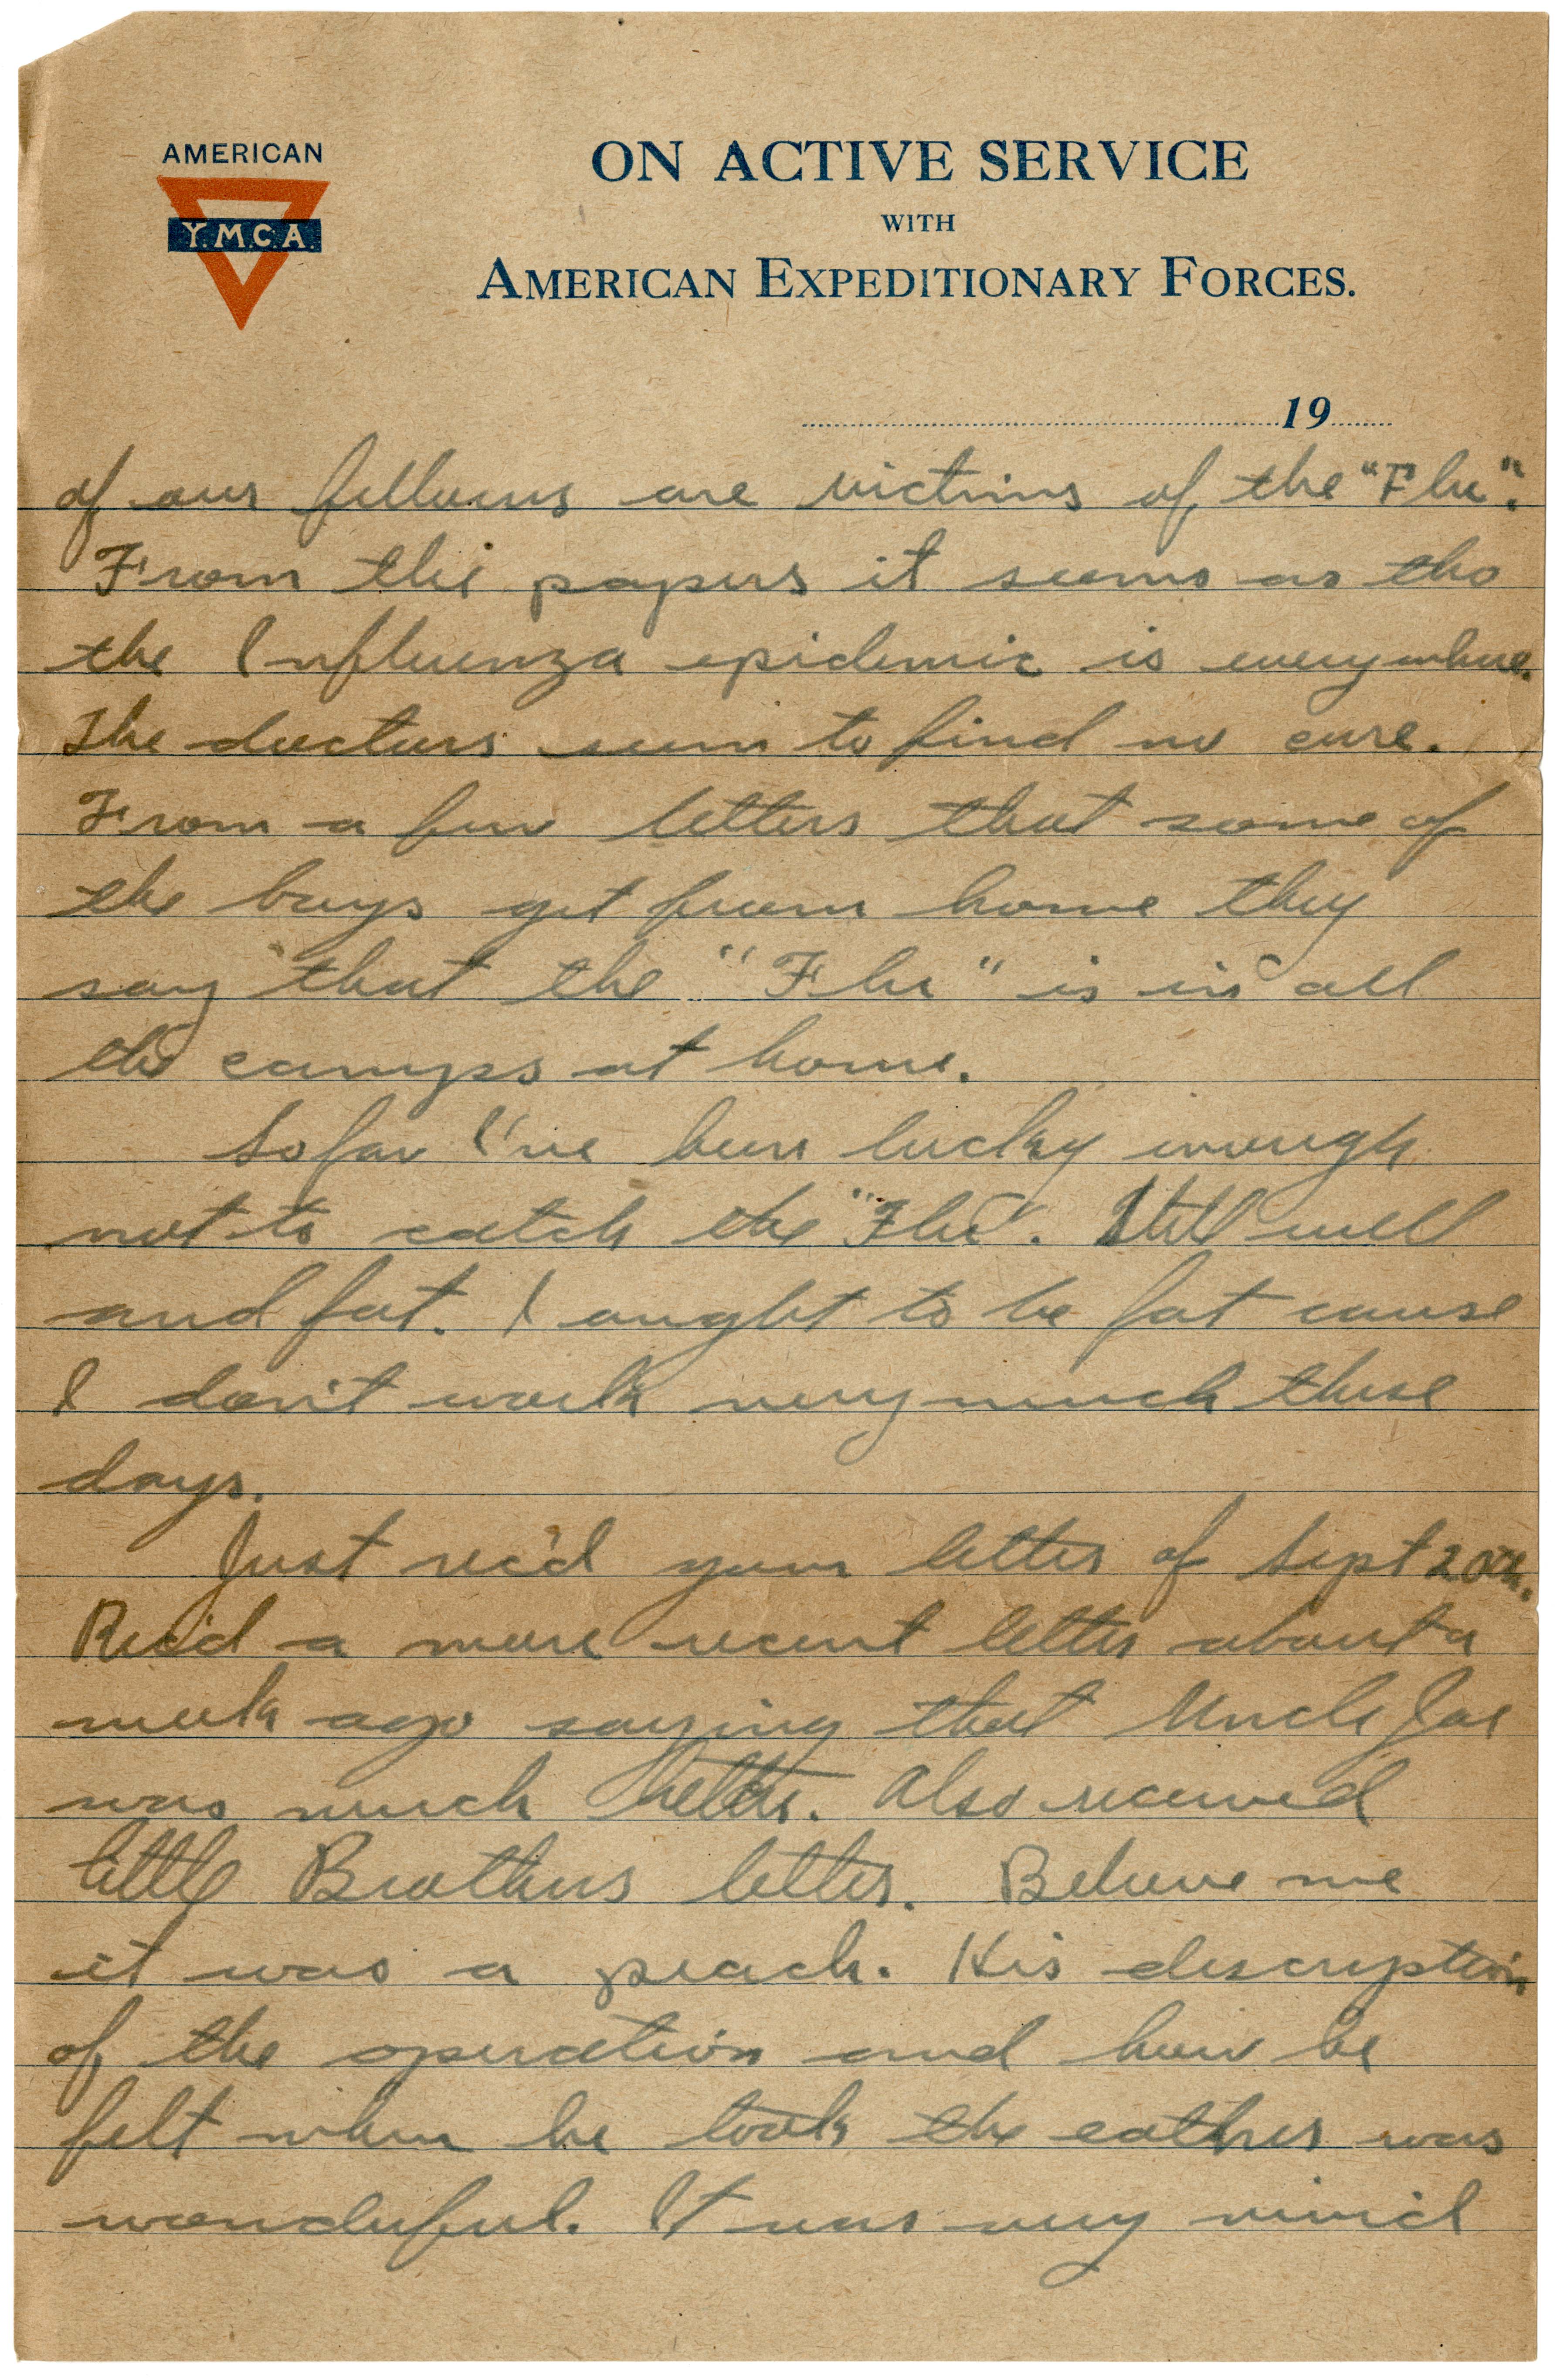 AMERICAN
Y.M.C.A.
ON ACTIVE SERVICE
WITH
AMERICAN EXPEDITIONARY FORCES.
19
of our fellows are victims of the "Flu".
From the papers it seems as tho
the Influenza epidemic is everywhere.
The doctors seem to find no cure.
From a few letters that some of
the boys get from home they
say that the "Flu" is in all
the camps at home.
So far I've been lucky enough
not to catch the "Flu". Still well
and fat. I ought to be fat cause
I don't work very much these
days.
Just rec'd your letter of Sept 20th.
Rec'd a more recent letter about a
week ago saying that Uncle Joe
was much better. Also received
little Brothers letter. Believe me
it was a peach. His description
of the operation and how he
felt when he took the eather was
wonderful. It was very vivid